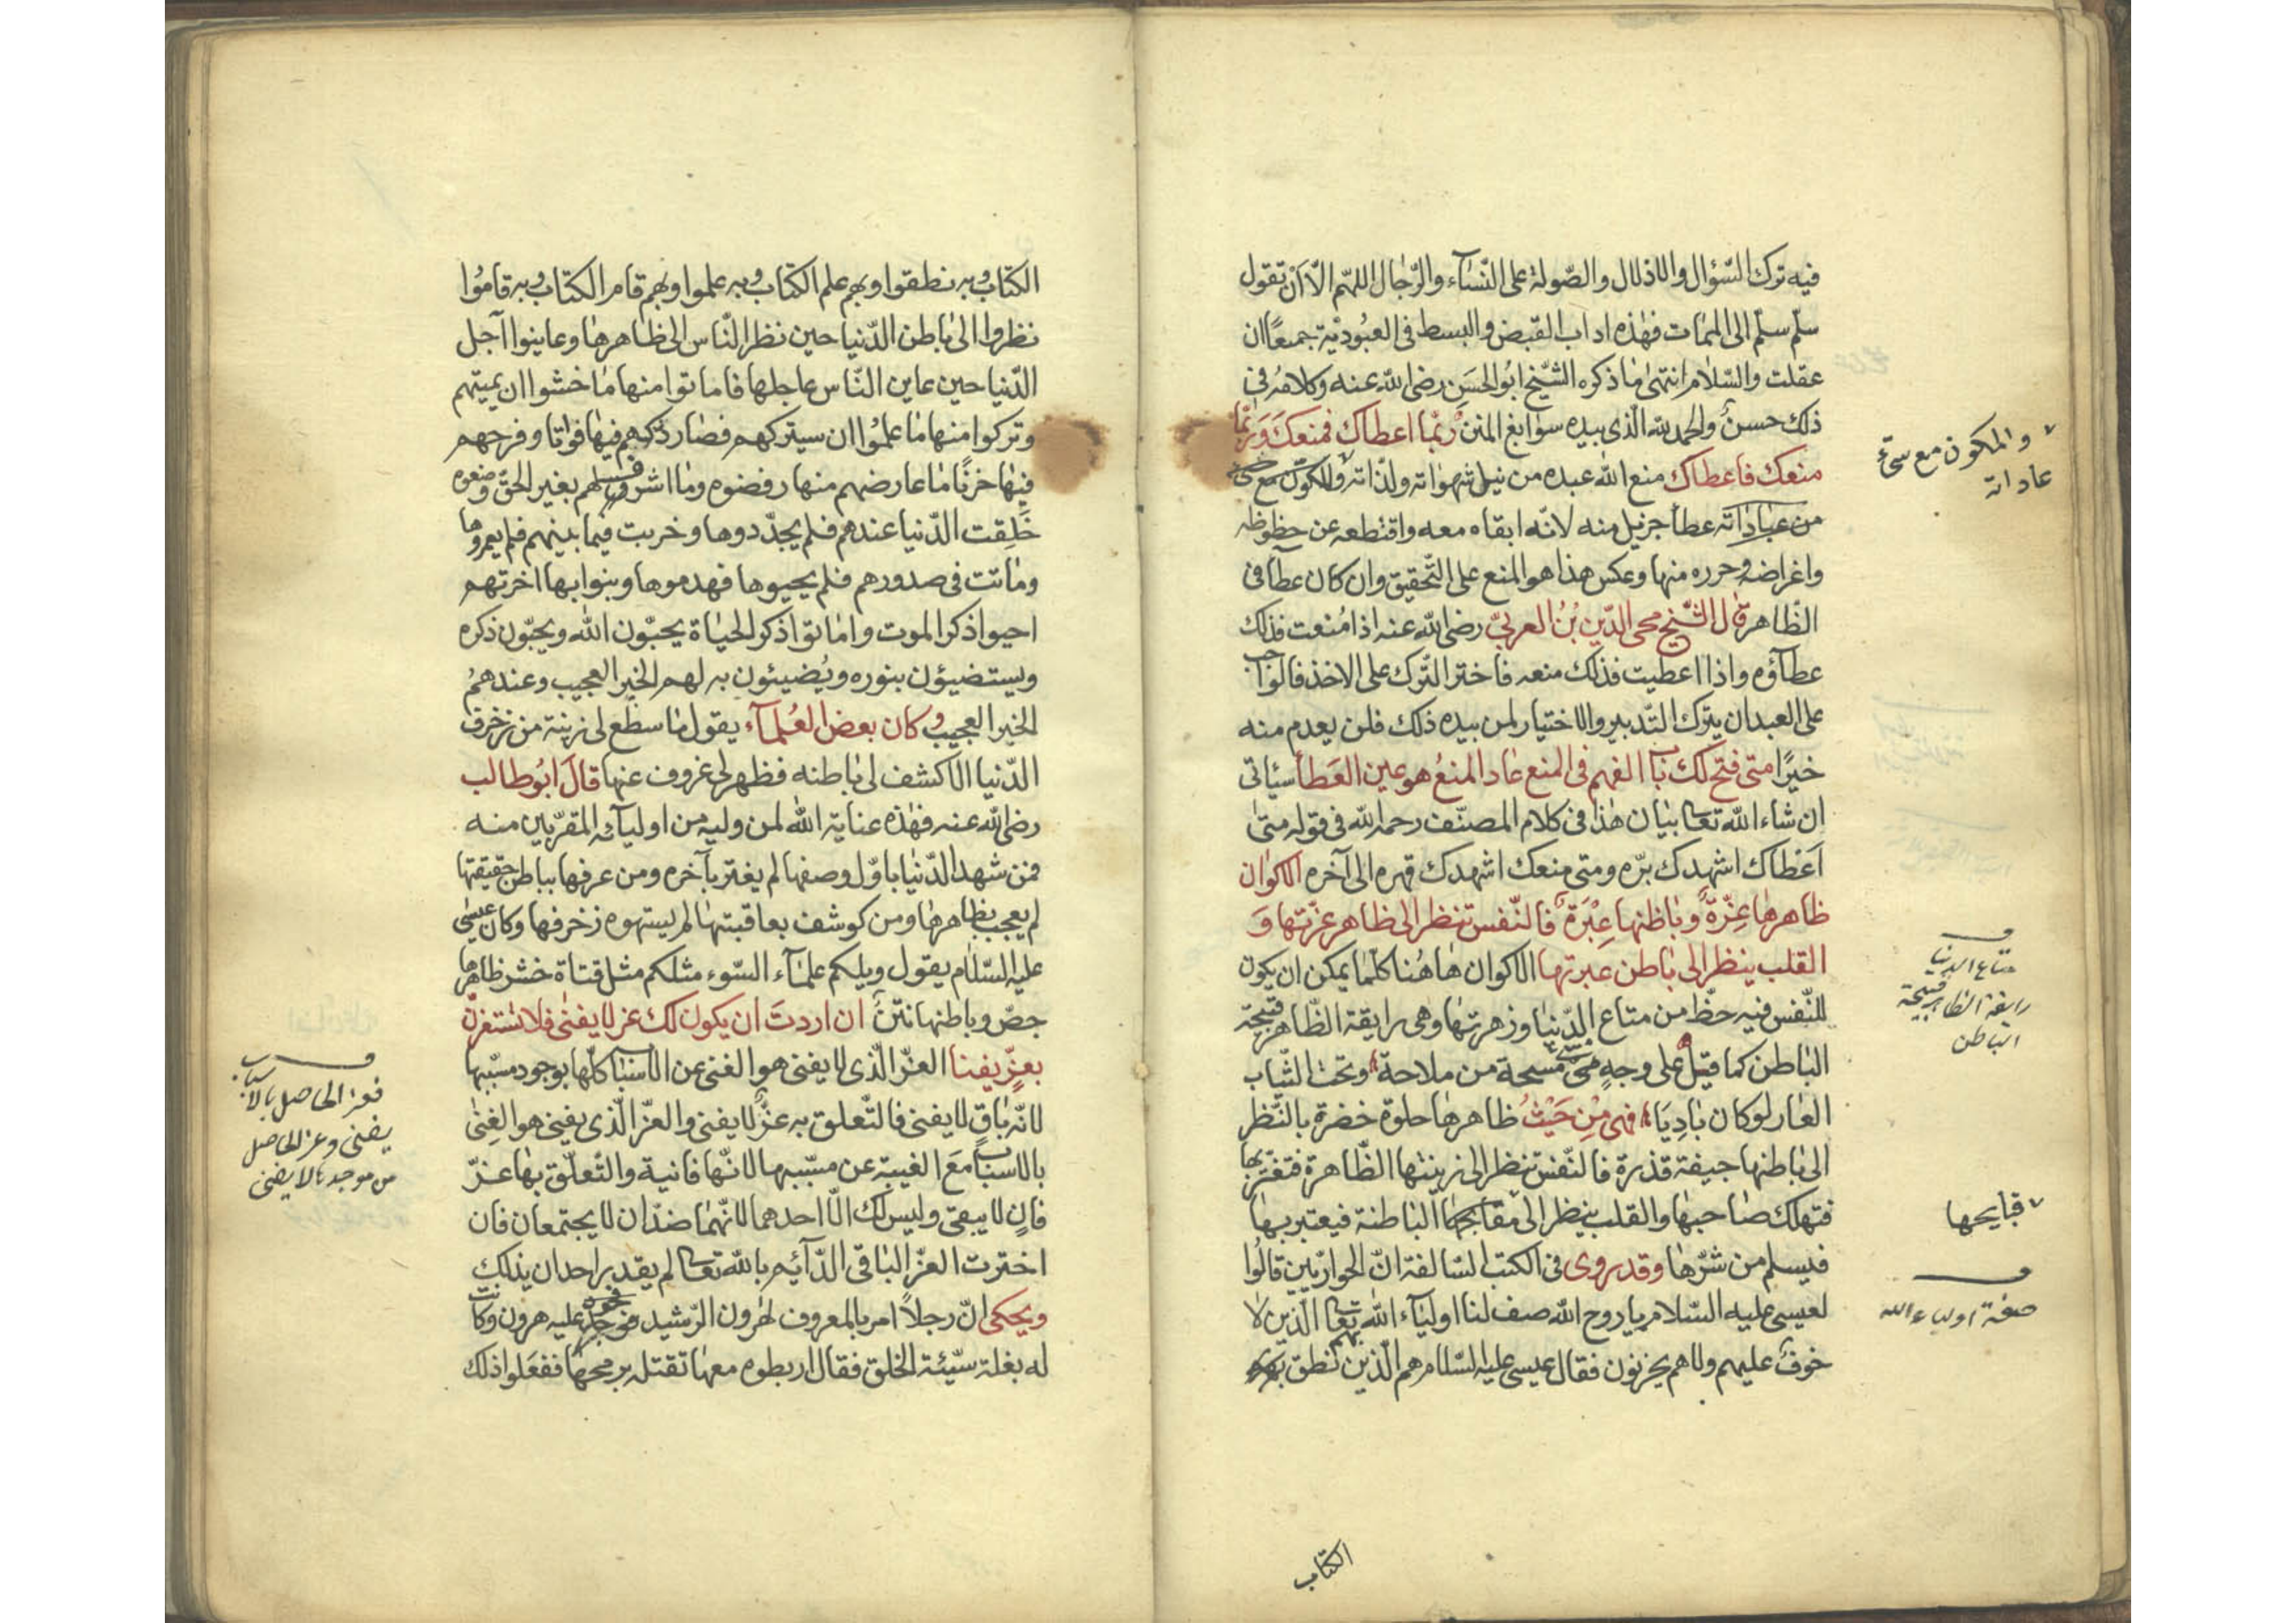 فيه ترك السّؤال والاذلال والصّولة على النّسآء والرّجال اللهمّ الّا ان تقول
سلّم سلّم الى الممات فهذه اداب القبض والبسط فى العبُوديّة جمعًا ان
عقلت والسّلام انتهى ما ذكره الشّيخ ابُو الحسَن رضى اللّه عنه وكلامُه فى
ذلك حسنٌ والحمد للّه الّذى بيده سوابغ المنن ربّما اعطاك فمنعكَ وَربّما
منعك فاعطاك منع اللّه عبده من نيل شهواته ولذّاته
من عطآ جزيل منه لانّه ابقاه معه واقتطعه عن حظوظه
واغراضه وحرره منها وعكس هذا هو المنع على التّحقيق وان كان عطآ فى
الظّاهر قال الشّيخ محى الدّين بْنُ العربىّ رضى اللّه عنه اذا مُنعت فذلك
عطآؤه واذا اعطيت فذلك منعه فاختر التّرك على الاخذ فالواجب
على العبد ان يترك التّدبير والاختيار لمن بيده ذلك فلن يعدم منه
خيرًا متى فتح لك باب الفهم فى المنع عاد المنعُ هو عين العَطآ سيأتى
ان شاء اللّه تعالى بيان هذا فى كلام المصنّف رحمه اللّه فى قوله متى
اَعْطاك اشهدك برّه ومتى منعك اشهدك قهره الى آخره الاكوان
ظاهرها غِرّةٌ وباطنها عِبْرَةٌ فالنّفس تنظر الى ظاهر غرّتها وَ
القلب ينظر الى باطن عبرتها الاكوان هاهُنا كلّما يمكن ان يكون
للنّفس فيه حظّ من متاع الدّنيا وزهرتها وهى رايقة الظّاهر قبيحة
الباطن كما قيل على وجه مىّ مسحة من ملاحة وتحت الثّياب
العار لو كان بادِيَا فهى مِنْ حَيْثُ ظاهرها حلوة خضرة بالنّظر
الى باطنها جيفة قذرة فالنّفس تنظر الى زينتها الظّاهرة فتغترّ بها
فتهلك صاحبها والقلب ينظر الى الباطنة فيعتبر بها
فيسلم من شرّها وقد روى فى الكتب السّالفة انّ الحواريّين قالُوا
لعيسى عليه السّلام يا روح اللّه صف لنا اوليآء اللّه تعالى الّذين لا
خوفٌ عليهم ولا هم يحزنون فقال عيسى عليه السّلام هم الّذين بهم نطق
الكتاب
والمكون مع سىّء
عاداته
متاع الدنيا
رايقة الظاهر قبيحة
الباطن
قبايحها
صفة اولياء اللّه
الكتاب وبه نطقوا وبهم علم الكتاب وبه علموا وبهم قام الكتاب وبه قامُوا
نظروا الى باطن الدّنيا حين نظر النّاس الى ظاهرها وعاينوا آجل
الدّنيا حين عاين النّاس عاجلها فاماتوا منها ما خشوا ان يميتهم
وتركوا منها ما علمُوا ان سيتركهم فصار ذكرهم فيها فواتا وفرحهم
فيها حزنًا ما عارضهم منها رفضوه وما اشرف لهم بغير الحقّ وضعوه
خَلِقت الدّنيا عندهم فلم يجدّدوها وخربت فيما بينهم فلم يعمروها
وماتت فى صدورهم فلم يحيوها فهدموها وبنوا بها اخرتهم
احيوا ذكر الموت واماتوا ذكر الحياة يحبّون اللّه ويحبّون ذكره
ويستضيؤن بنوره ويُضيئون به لهم الخبر العجيب وعندهمُ
الخبر العجيب وكان بعض العُلمآء يقول ما سطع لى زينة من زخرف
الدّنيا الّا كشف لى باطنه فظهر لى عزوف عنها قالَ ابُو طالب
رضى اللّه عنه فهذه عناية اللّه لمن وليه من اوليآئه المقرّبين منه
فمن شهد الدّنيا باوّل وصفها لم يغتر بآخره ومن عرفها بباطن حقيقتها
لم يعجب بظاهرها ومن كوشف بعاقبتها لم يستهوه زخرفها وكان عيسى
عليه السّلام يقول ويلكم علمآء السّوء مثلكم مثل قناة حُشّ ظاهرها
جصّ وباطنها نتنٌ ان اردتَ ان يكون لك عز لا يفنى فلا تستعزنّ
بعزٍّ يفنا العزّ الّذى لا يفنى هو الغنى عن الاسباب كلّها بوجود مسبّبها
لانّه باقٍ لا يفنى فالتّعلق به عزٌّ لا يفنى والعزّ الّذى يفنى هو الغِنى
بالاسباب مَعَ الغيبة عن مسبّبها لانّها فانية والتّعلّق بها عزّ
فانٍ لا يبقى وليس لك الّا احدهما لانّهما ضدّان لا يجتمعان فان
اخترت العزّ الباقى الدّآئم باللّه تعالى لم يقدر احد ان يذلك
ويحكى انّ رجلًا امر بالمعروف لهرون الرّشيد عليه هرون وكانت
له بغلة سيّئة الخلق فقال اربطوه معها تقتله برمحها ففعَلوا ذلك
فعز الحاصل بالاسباب
يفنى وعز الحاصل
من موجدها لا يفنى